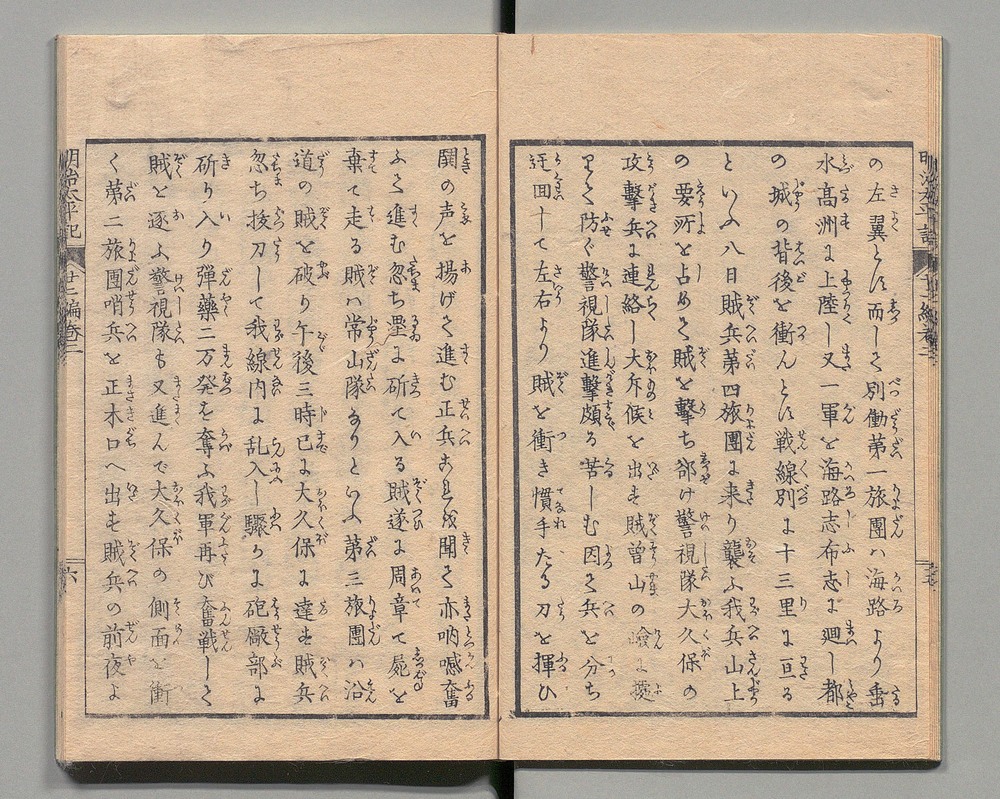 の左翼とす而して別働第一旅團ハ海路より垂
水高洲に上陸し又一軍を海路志布志に廻し都
の城の背後を衝んとす戦線別に十三里に亘る
といふ八日賊兵第四旅團に来り襲ふ我兵山上
の要所を占めて賊を撃ち郤け警視隊大久保の
攻撃兵に連絡し大斥候を出す賊曽山の嶮に
て防ぐ警視隊進撃頗る苦しむ因て兵を分ち
迂回して左右より賊を衝き慣手たる刀を揮ひ
鬨の声を揚げて進む正兵これを聞て亦吶喊奮
ふて進む忽ち壘に斫て入る賊遂に周章て屍を
棄て走る賊ハ常山隊なりといふ第三旅團ハ沿
道の賊を破り午後三時已に大久保に達す賊兵
忽ち抜刀して我線内に乱入し驟かに砲廠部に
斫り入り弾藥二万発を奪ふ我軍再び奮戦して
賊を逐ふ警視隊も又進んで大久保の側面を衝
く第二旅團哨兵を正木口へ出す賊兵の前夜よ
明治太平記 廿二編巻二
六